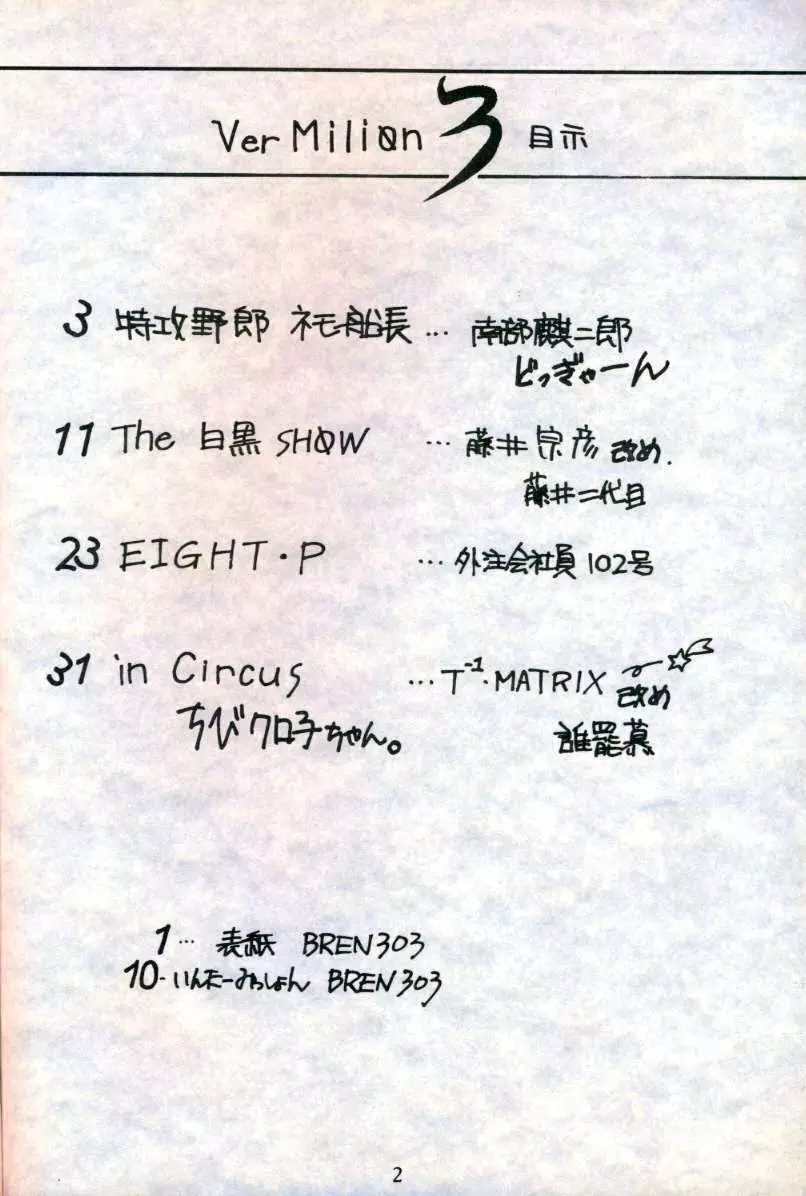 Ver Milion 3 目示
3 特攻野郎 ネモ船長 … 南部麒二郎
どっぎゃーん
11 The 白黒 SHOW … 藤井宗彦 改め.
藤井二代目
23 EIGHT・P … 外注会社員102号
31 in Circus … T⁻¹・MATRIX 改め
ちびクロ子ちゃん。 誰罷慕
1… 表紙 BREN303
10・いんたーみっしょん BREN303
2